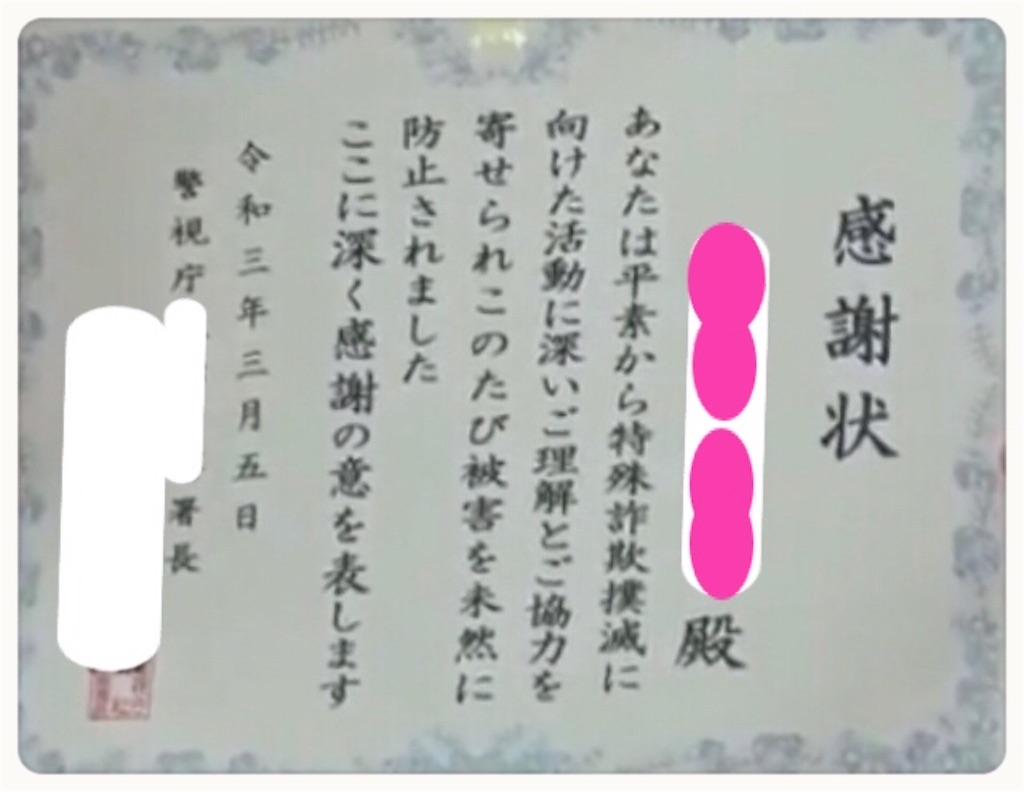 感謝状
殿
あなたは平素から特殊詐欺撲滅に
向けた活動に深いご理解とご協力を
寄せられこのたび被害を未然に
防止されました
ここに深く感謝の意を表します
令和三年三月五日
警視庁
署長